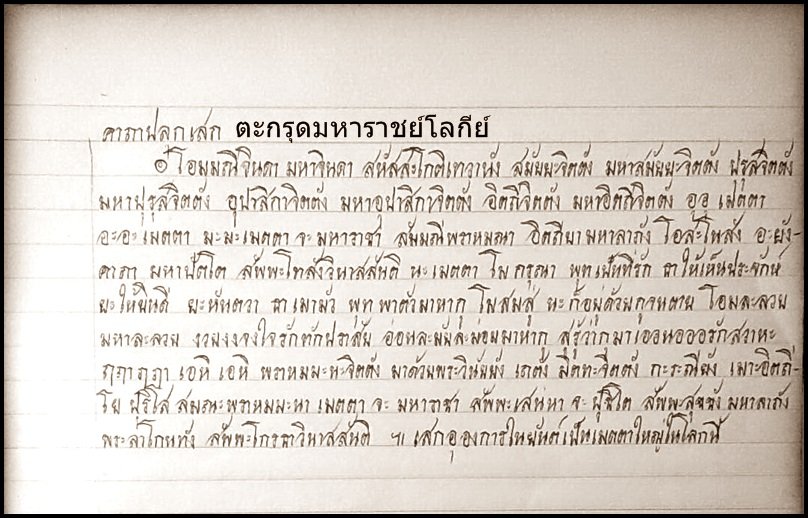 คาถาปลุกเสก ตะกรุดมหาราชย์โลกีย์
๏ โอมมณีจินดา มหาจินดา สหัสสะโกติเทวานัง สมัยยะจิตตัง มหาสมัยยะจิตตัง ปุรุสจิตตัง
มหาปุรุสจิตตัง อุปาสิกาจิตตัง มหาอุปาสิกาจิตตัง อิตถีจิตตัง มหาอิตถีจิตตัง อุอุ เมตตา
อะอะ เมตตา มะมะ เมตตา จะ มหาราชา สัมมณีพราหมณา อิตถียา มหาลาภัง โอสะโพสัง อะยัง-
คาถา มหาปัตโต สัพพะโทสังวินาสสันติ นะ เมตตา โม กรุณา พุท เป็นที่รัก ธา ให้เห็นประจักษ์
ยะ ให้ยินดี ยะ หันตวา ธา เมามัว พุท พาตัวมาหากู โมสมสู่ นะ ก็อยู่ด้วยกูจนตาย โอมละลวย
มหาละลวย งวยงงจงใจรักทักปราสัย อ่อนละมัยละม่อมมาหากู สุรู้ว่ากูมาเออออรักสวาหะ
ฤๅฤๅ ฦๅ เอหิ เอหิ พราหมมะหะจิตตัง มาด้วยพระวินัยยัง เถตัง มิตทะจิตตัง กะระณียัง เมาะอิตถี-
โย ปุริโส สมณะพราหมมะหา เมตตา จะ มหาราชา สัพพะเสน่หา จะ ปูชิโต สัพพะสุขขัง มหาลาภัง
พระลาโภนทัง สัพพะโกรธาวินาสสันติ ฯ เสกอุองการในยันต์เป็นเมตตาใหญ่ในโลกนี้